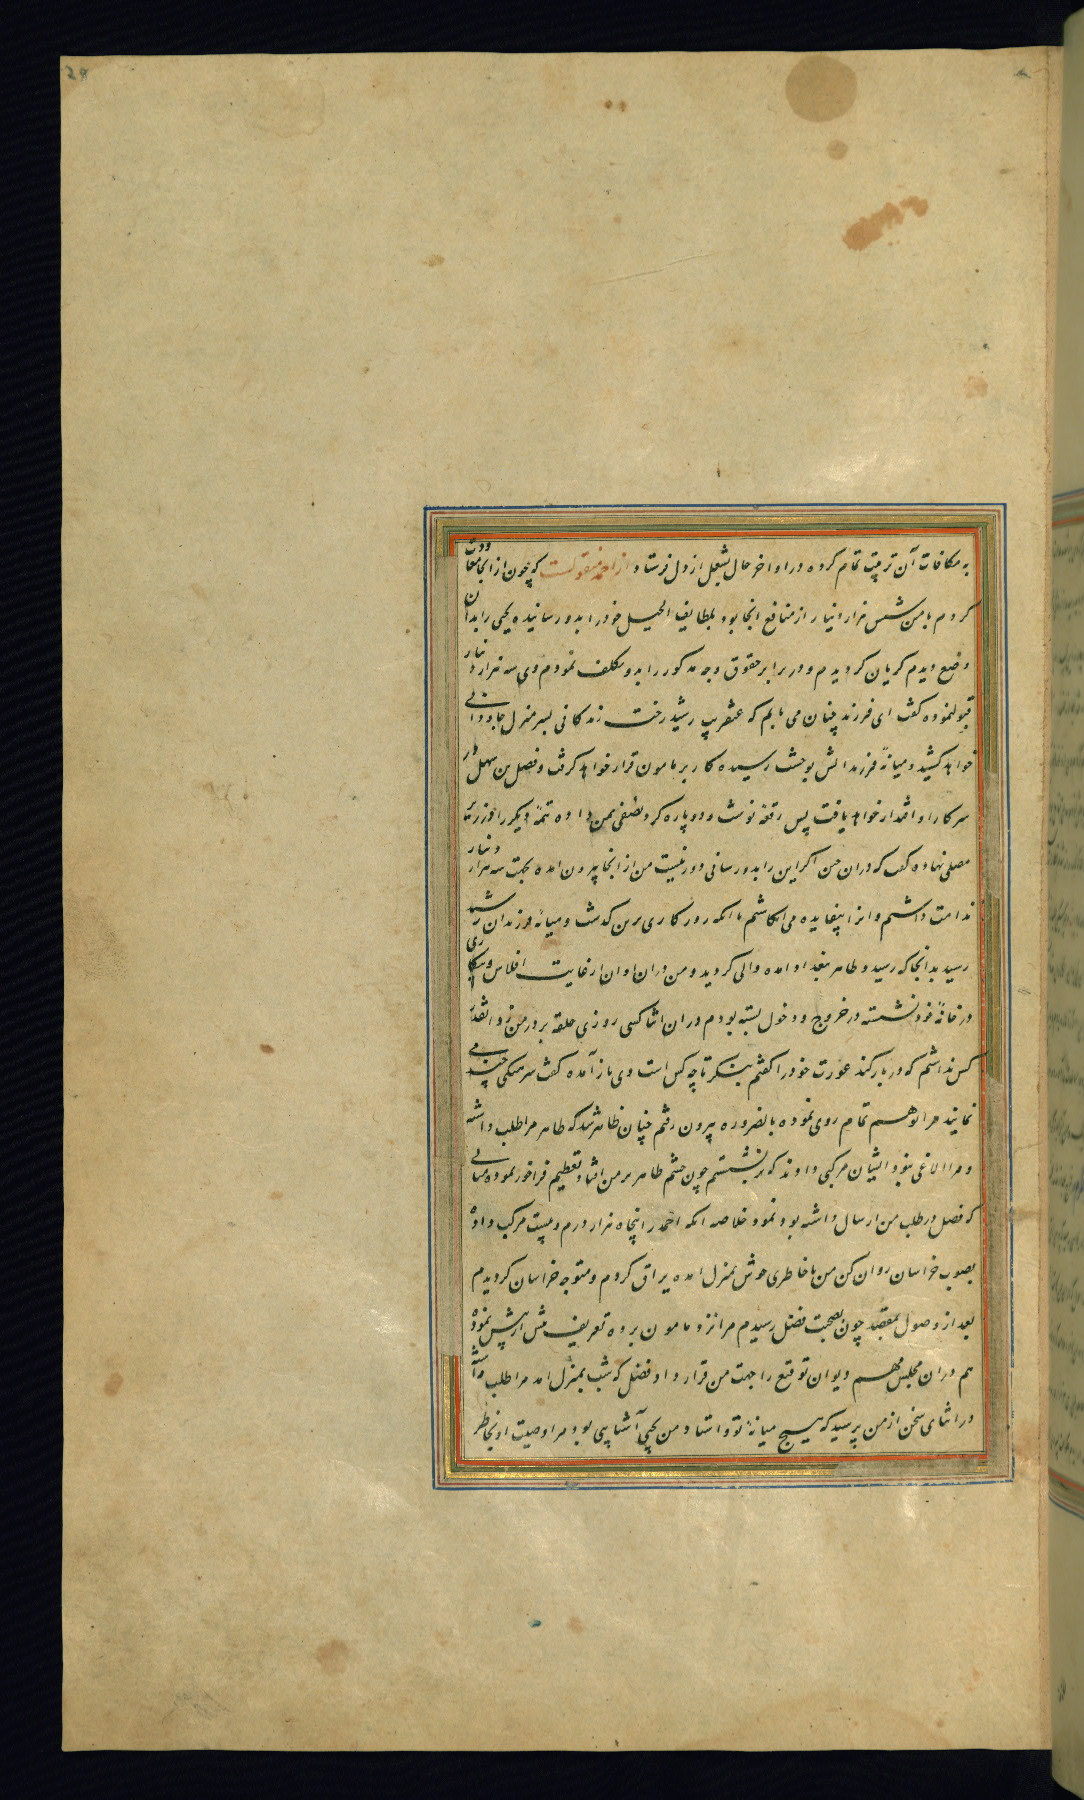 به مکافات آن تربیت تمام کرده در اواخر حال بشغل اردن فرستاد از احمد منقولست که چون از انجا معاودت
کردم با من شش هزار دینار از منافع انجا بود بلطایف الحیل خود را بدو رسانیده یحیی را بدان
وضع دیدم کریان کردیدم و در برابر حقوق وجه مذکور را بدو تکلف نمودم وی سه هزار دینار
قبول نموده کفت ای فرزند چنان می یابم که عنقریب رشید رخت زندکانی بسر منزل جاودانی
خواهد کشید و میانهٔ فرزندانش بوحشت رسیده کار بر مامون قرار خواهد کرفت و فضل بن سهل در
سرکار او اقتدار خواهد یافت پس رقعهٔ نوشت و دو پاره کرد نصفی بمن داده تتمهٔ دیکر را در زیر
مصلی نهاده کفت که دران حین اکر این را بدو رسانی دور نیست من از انجا بیرون امده بجهت سه هزار دینار
ندامت داشتم و انرا بیفایده می انکاشتم تا انکه روزکاری برین کذشت و میانهٔ فرزندان رشید
رسید بدانجا که رسید و طاهر ببغداد امده والی کردید و من دران اوان از غایت افلاس و بیکاری
در خانهٔ خود نشسته در خروج و دخول بسته بودم دران اثنا کسی روزی حلقه بر در من زد و انقدر
کس نداشتم که در باز کند عورت خود را کفتم بنکر تا چه کس است وی باز آمده کفت سرهنکی چند می
نمایند مرا توهم تمام روی نموده بالضروره بیرون رفتم چنان ظاهر شد که طاهر مرا طلب داشته
و مرا الاغی نبود ایشان مرکبی دادند که برنشستم چون چشم طاهر بر من افتاد تعظیم فراخور نموده مثالی
که فضل در طلب من ارسال داشته بود نمود خلاصه انکه احمد را پنجاه هزار درم و بیست مرکب داده
بصوب خراسان روان کن من با خاطری خوش بمنزل امده یراق کردم و متوجه خراسان کردیدم
بعد از وصول بمقصد چون بصحبت فضل رسیدم مرا نزد مامون برده تعریف بیش از پیش نموده
هم دران مجلس مهم دیوان توقیع را جهت من قرار داد فضل که شب بمنزل امد مرا طلب داشته
در اثنای سخن از من پرسید که هیچ میانهٔ تو و استاد من یحیی آشنایی بود مرا وصیت او بخاطر